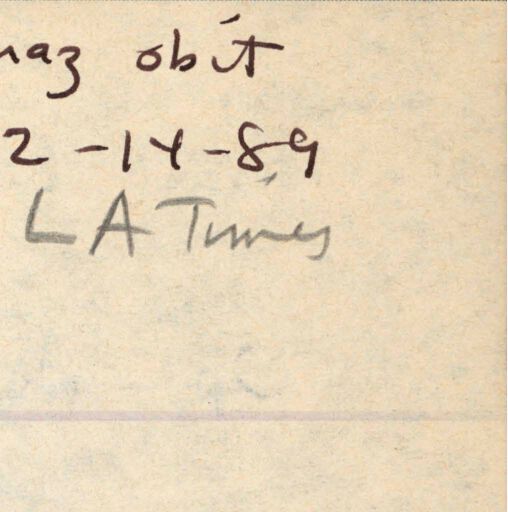 naz obit
2-14-89
LA Times